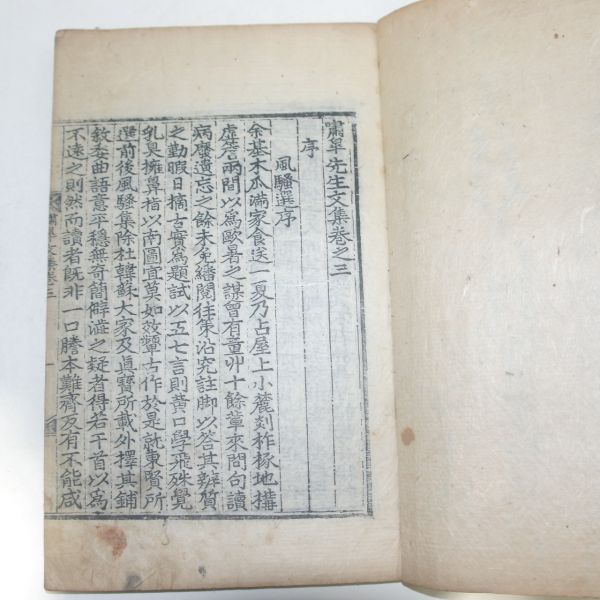 嘯皐先生文集卷之三
序
風騷選序
余基木瓜滿家食送一夏乃占屋上小麓剡柞椓地搆
虛簷兩間以爲歐暑之謀曾有童丱十餘輩來問句讀
病廢遺忘之餘未免繙閱往策沿究註脚以答其辨質
之勤暇日摘古實爲題試以五七言則黃口學飛殊覺
乳臭擁鼻指以南圖宜莫如效顰古作於是就東賢所
選前後風騷集除杜韓蘇大家及眞寶所載外擇其鋪
敘委曲語意平穩無奇簡僻澁之疑者得若干首以爲
不遠之則然而讀者旣非一口謄本難齊亦有不能咸
嘯皐文集卷三